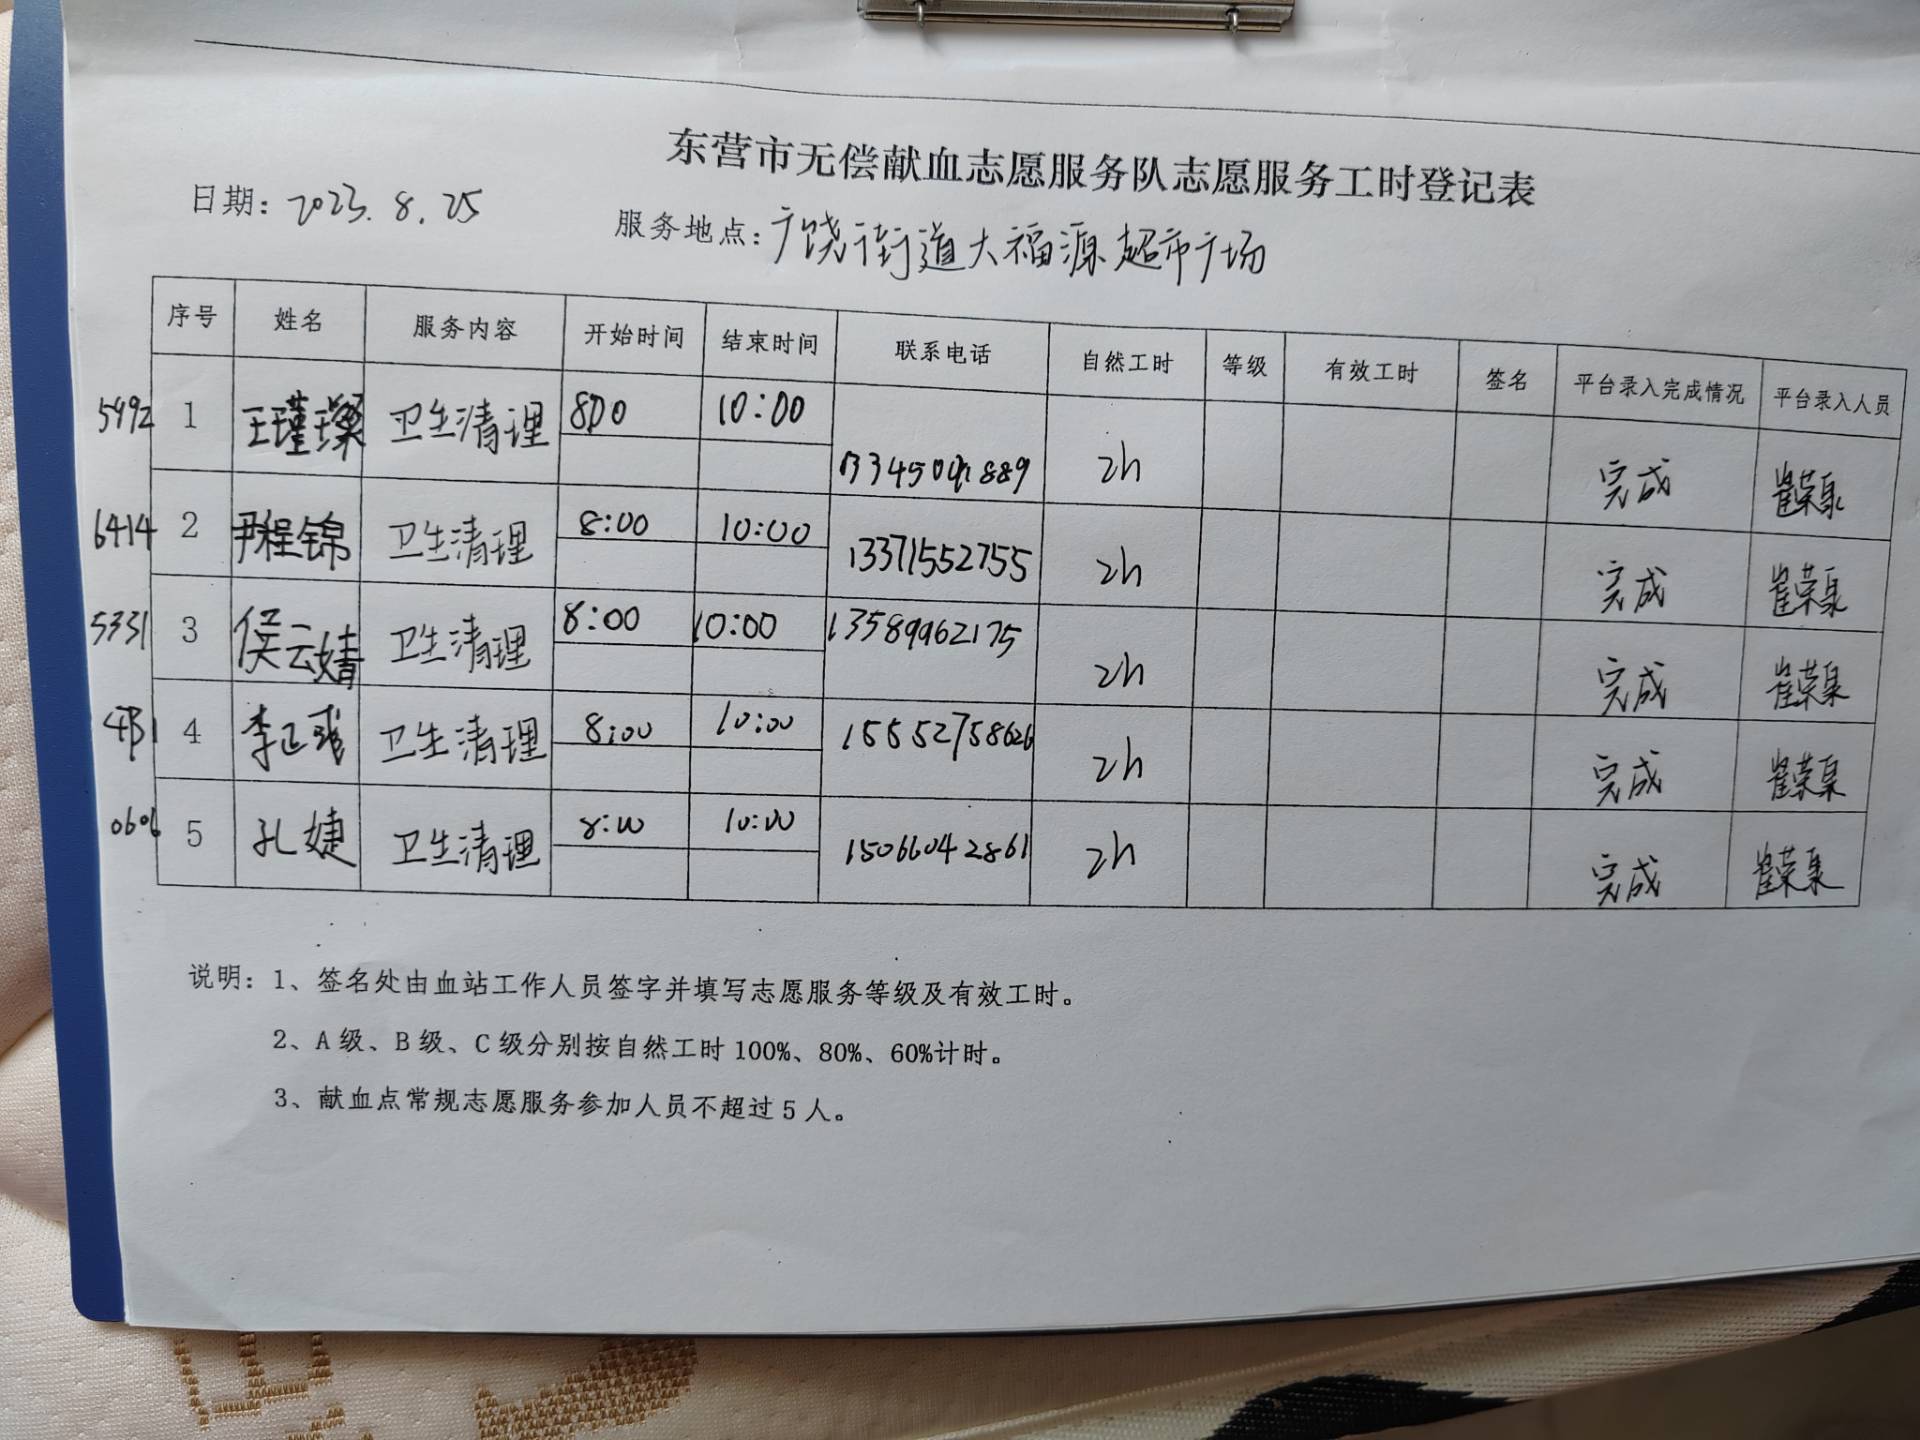 东营市无偿献血志愿服务队志愿服务工时登记表
日期: 2023.8.25
服务地点: 广饶街道大福源超市广场
序号 姓名 服务内容 开始时间 结束时间 联系电话 自然工时 等级 有效工时 签名 平台录入完成情况 平台录入人员
5992 1 王瑾璨 卫生清理 8:00 10:00 2h 完成 崔荣泉
6414 2 尹程锦 卫生清理 8:00 10:00 13371552755 2h 完成 崔荣泉
5331 3 侯云婧 卫生清理 8:00 10:00 13589962175 2h 完成 崔荣泉
4 李正 卫生清理 8:00 10:00 15552758626 2h 完成 崔荣泉
0606 5 孔婕 卫生清理 8:00 10:00 15066042861 2h 完成 崔荣泉
说明: 1、签名处由血站工作人员签字并填写志愿服务等级及有效工时。
2、A级、B级、C级分别按自然工时100%、80%、60%计时。
3、献血点常规志愿服务参加人员不超过5人。